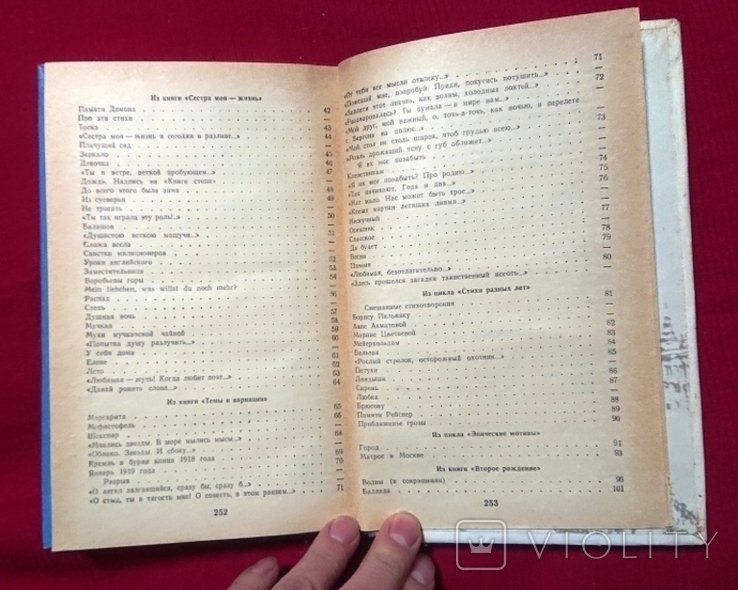 Из книги «Сестра моя — жизнь»
Памяти Демона 42
Про эти стихи —
Тоска 43
«Сестра моя — жизнь и сегодня в разливе...» 44
Плачущий сад 45
Зеркало 46
Девочка 46
«Ты в ветре, веткой пробующем...» 47
Дождь. Надпись на «Книге степи» —
До всего этого была зима 48
Из суеверья 49
Не трогать —
«Ты так играла эту роль!..» 50
Балашов 51
«Душистою веткою машучи...»
Сложа весла
Свистки милиционеров
Уроки английского
Заместительница
Воробьевы горы
Mein liebchen, was willst du noch mehr?
Распад 56
Степь
Душная ночь 58
Мучкап 59
Мухи мучкапской чайной
«Попытка душу разлучить...» 60
У себя дома 61
Елене 62
Лето 63
«Любимая — жуть! Когда любит поэт...» 64
«Давай ронять слова...»
Из книги «Темы и вариации»
Маргарита 65
Мефистофель 66
Шекспир 68
«Мчались звезды. В море мылись мысы...»
«Облако. Звезды. И сбоку...» 69
Кремль в буран конца 1918 года 70
Январь 1919 года —
Разрыв
«О ангел залгавшийся, сразу бы, сразу б...» —
«О стыд, ты в тягость мне! О совесть, в этом раннем...» 71
252
«От тебя все мысли отвлеку...» 71
«Помешай мне, попробуй. Приди, покусись потушить...» 72
«Заплети этот ливень, как волны, холодных локтей...»
«Разочаровалась? Ты думала — в мире нам...»
«Мой друг, мой нежный, о, точь-в-точь, как ночью, в перелете
с Бергена на полюс...» 73
«Мой стол не столь широк, чтоб грудью всею...»
«Рояль дрожащий пену с губ оближет...»
Я их мог позабыть 74
Клеветникам 75
«Я их мог позабыть? Про родню...» 76
«Так начинают. Года в два...» —
«Нас мало. Нас может быть трое...» —
«Косых картин, летящих ливмя...»
Нескучный 77
Орешник 78
Спасское 79
Да будет —
Весна —
Поэзия 80
«Любимая, безотлагательно...»
«Здесь прошелся загадки таинственный ноготь...»
Из цикла «Стихи разных лет»
81
Смешанные стихотворения
Борису Пильняку —
Анне Ахматовой 82
Марине Цветаевой 83
Мейерхольдам 84
Бальзак 85
«Рослый стрелок, осторожный охотник...»
Петухи 86
Ландыши 87
Сирень
Любка 88
Брюсову 89
Памяти Рейснер 90
Приближенье грозы
Из цикла «Эпические мотивы»
Город 91
Матрос в Москве 93
Из книги «Второе рождение»
Волны (в сокращении) 96
Баллада 101
253
VIOLITY